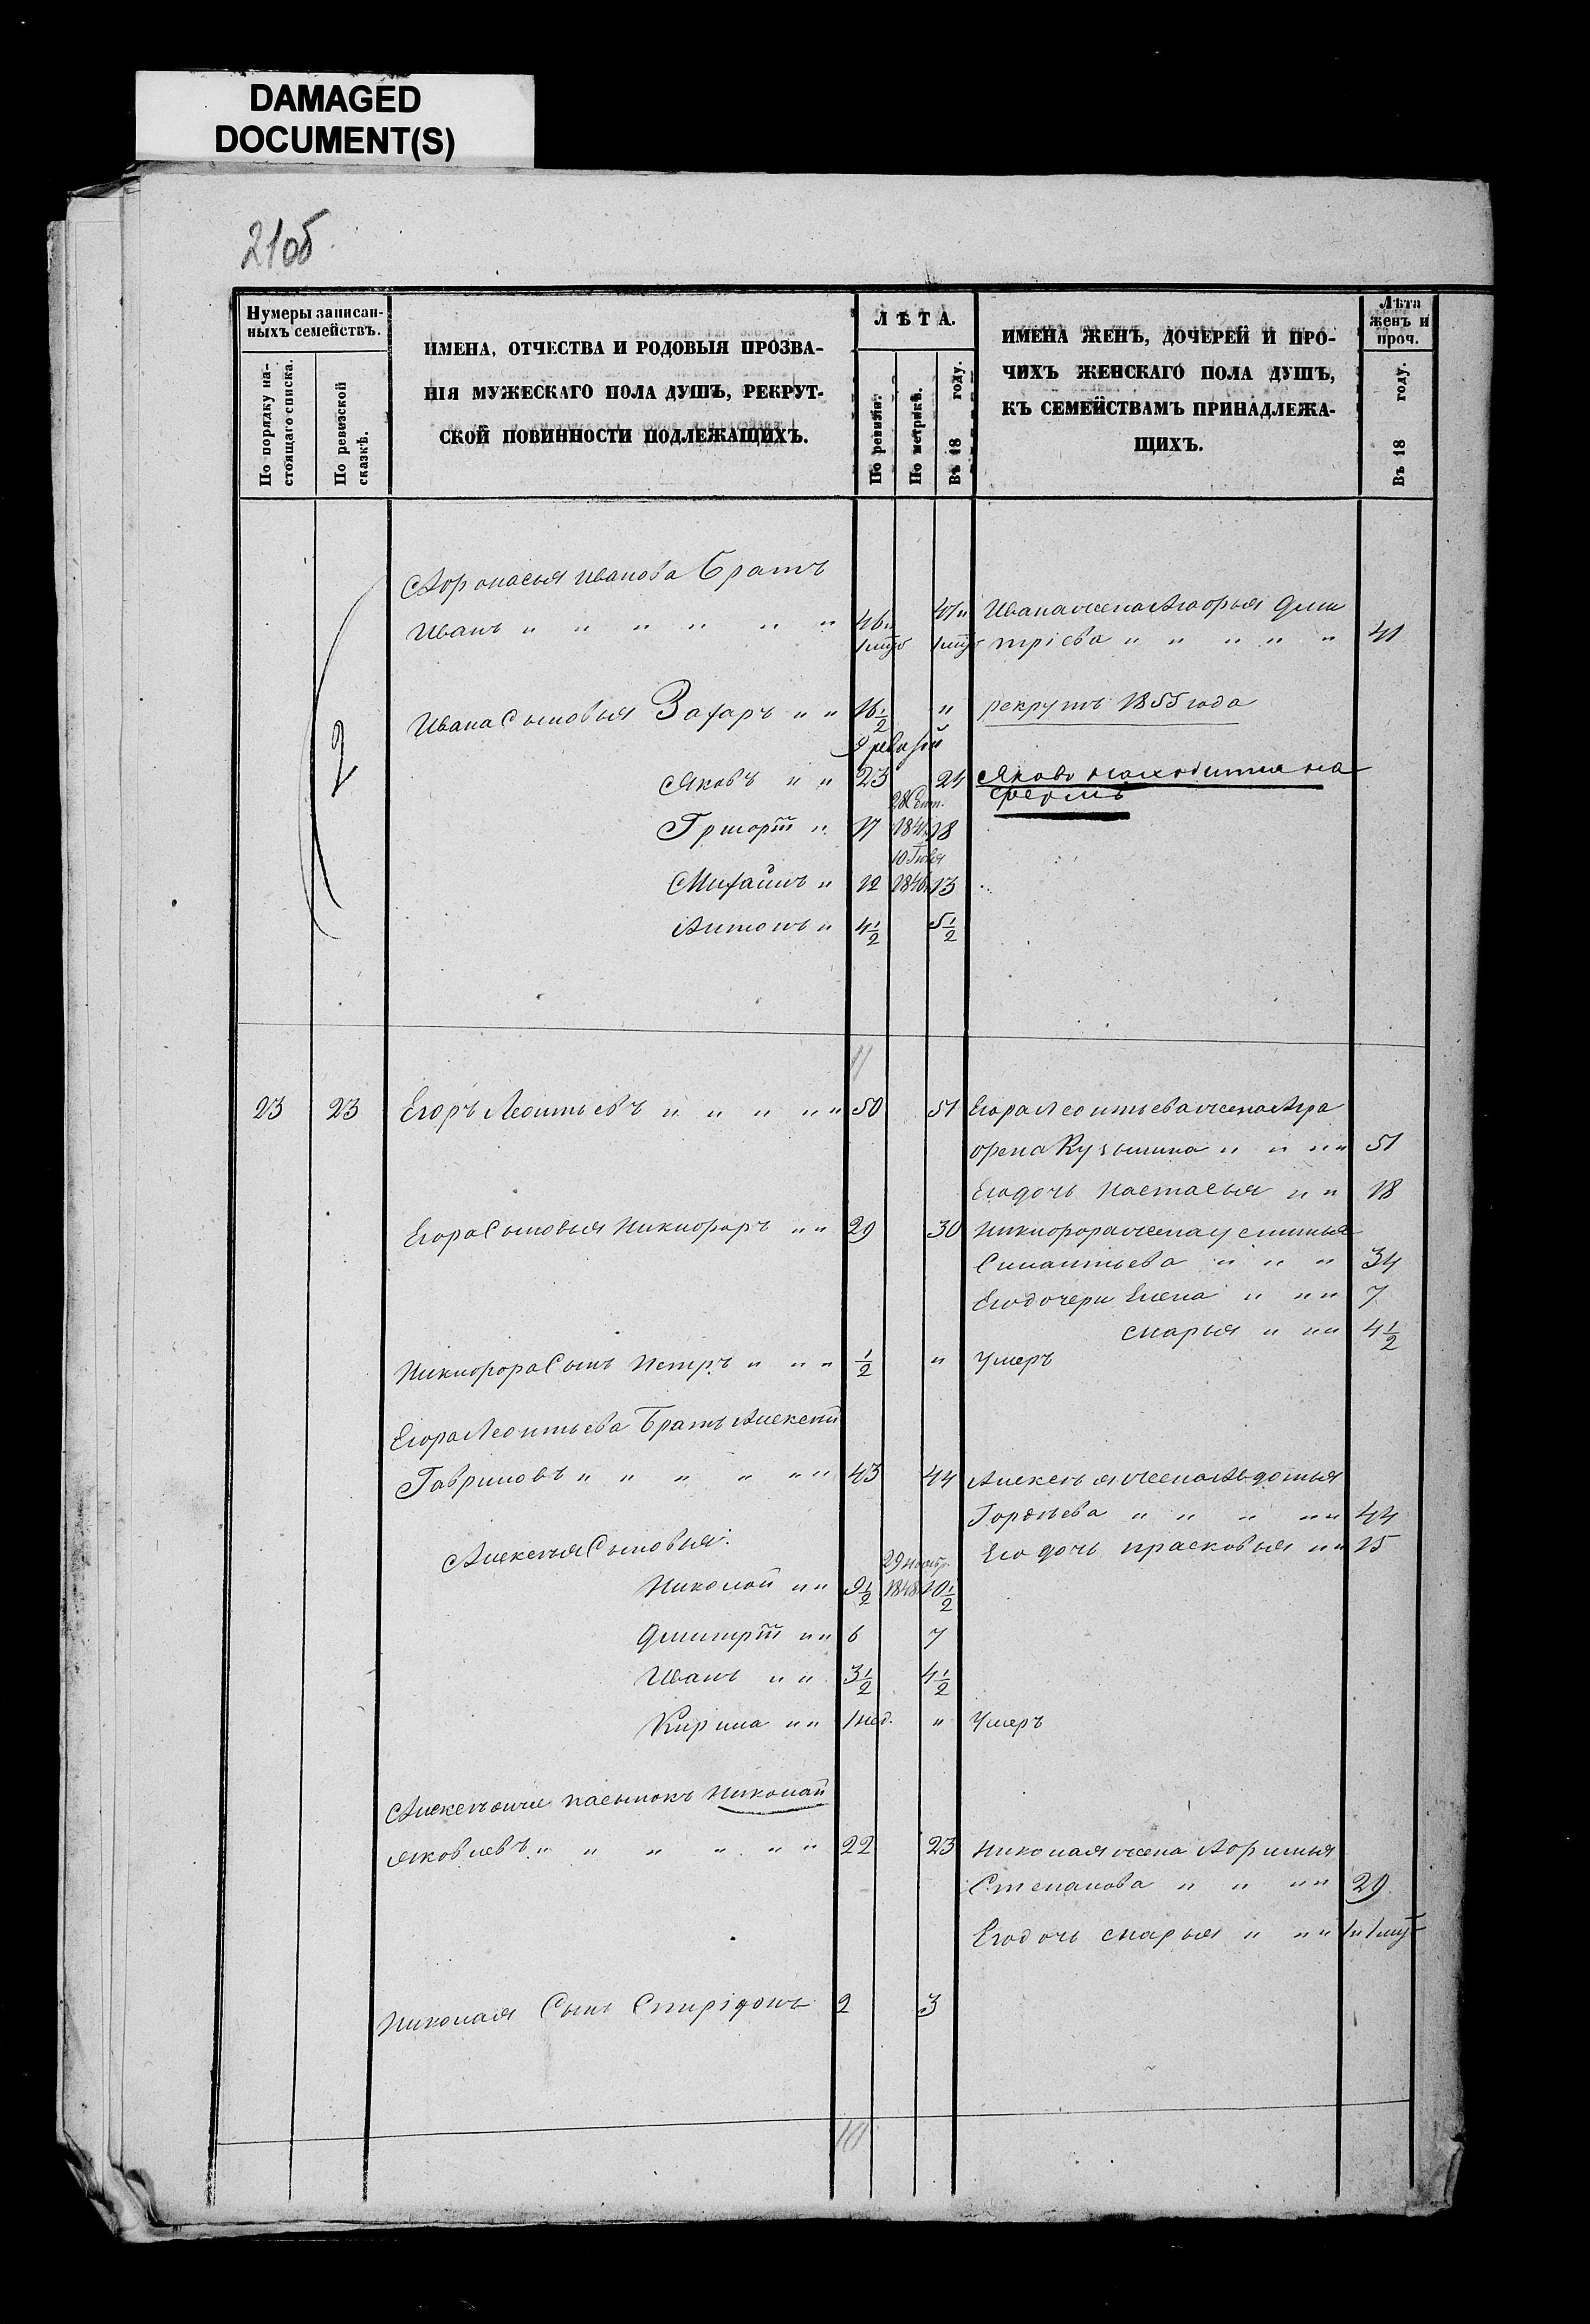 DAMAGED
DOCUMENT(S)
21об
Нумеры записан-
ныхъ семействъ.
По порядку на-
стоящаго списка.
По ревизской
сказкѣ.
ИМЕНА, ОТЧЕСТВА И РОДОВЫЯ ПРОЗВА-
НІЯ МУЖЕСКАГО ПОЛА ДУШЪ, РЕКРУТ-
СКОЙ ПОВИННОСТИ ПОДЛЕЖАЩИХЪ.
ЛѢТА.
По ревизіи.
По метрикѣ.
Въ 18 году.
ИМЕНА ЖЕНЪ, ДОЧЕРЕЙ И ПРО-
ЧИХЪ ЖЕНСКАГО ПОЛА ДУШЪ,
КЪ СЕМЕЙСТВАМЪ ПРИНАДЛЕЖА-
ЩИХЪ.
Лѣта
женъ и
проч.
Въ 18 году.
2
Афонасья Иванова Братъ
Иванъ " " " " " " 46 47 Ивана жена Марья Дми
тріева " " " " " 41
Ивана Сыновья Захаръ " " 16½ " рекрутъ 1855 года
9 ревизіи
Яковъ " " 23 24 Яковъ находится на
фермѣ
28 Сент.
Григорій " 17 1841 18
10 Іюля
Михаилъ " 12 1846 13
Антонъ " 4½ 5½
11
23 23 Егоръ Леонтьевъ " " " " " 50 51 Егора Леонтьева жена Агра
фена Кузьмина " " " " 51
Его дочь Настасья " " 18
Егора Сыновья Никифоръ " " 29 30 Никифора жена Устинья
Силантьева " " " 34
Его дочери Елена " " " 7
Марья " " " 4½
Никифора Сынъ Петръ " " " ½ " Умеръ
Егора Леонтьева Братъ Алексѣй
Гавриловъ " " " " " " 43 44 Алексѣя жена Авдотья
Гордѣева " " " " " 44
Алексѣя Сыновья: Его дочь Прасковья " " 15
29 Ноябр.
Николай " " 9½ 1848 10½
Дмитрій " " 6 7
Иванъ " " 3½ 4½
Кирила " " 1 нед. " Умеръ
Алексѣевъ пасынокъ Николай
Яковлевъ " " " " " " 22 23 Николая жена Афимья
Степанова " " " " 29
Его дочь Марья " " "
Николая Сынъ Спиридонъ 2 3
10